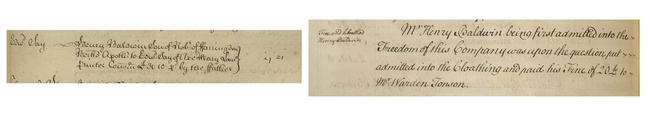 Edw. Say
Henry Baldwin Son of Robt of Faringdon
to Edw. Say of Ave Mary Lane
Printer Consn by the Father
Fine and Cloathed
Henry Baldwin
Mr. Henry Baldwin being first admitted into the
Freedom of this Company was upon the question put
admitted into the Cloathing and paid his Fine of 20£ to
Mr. Warden Tonson.